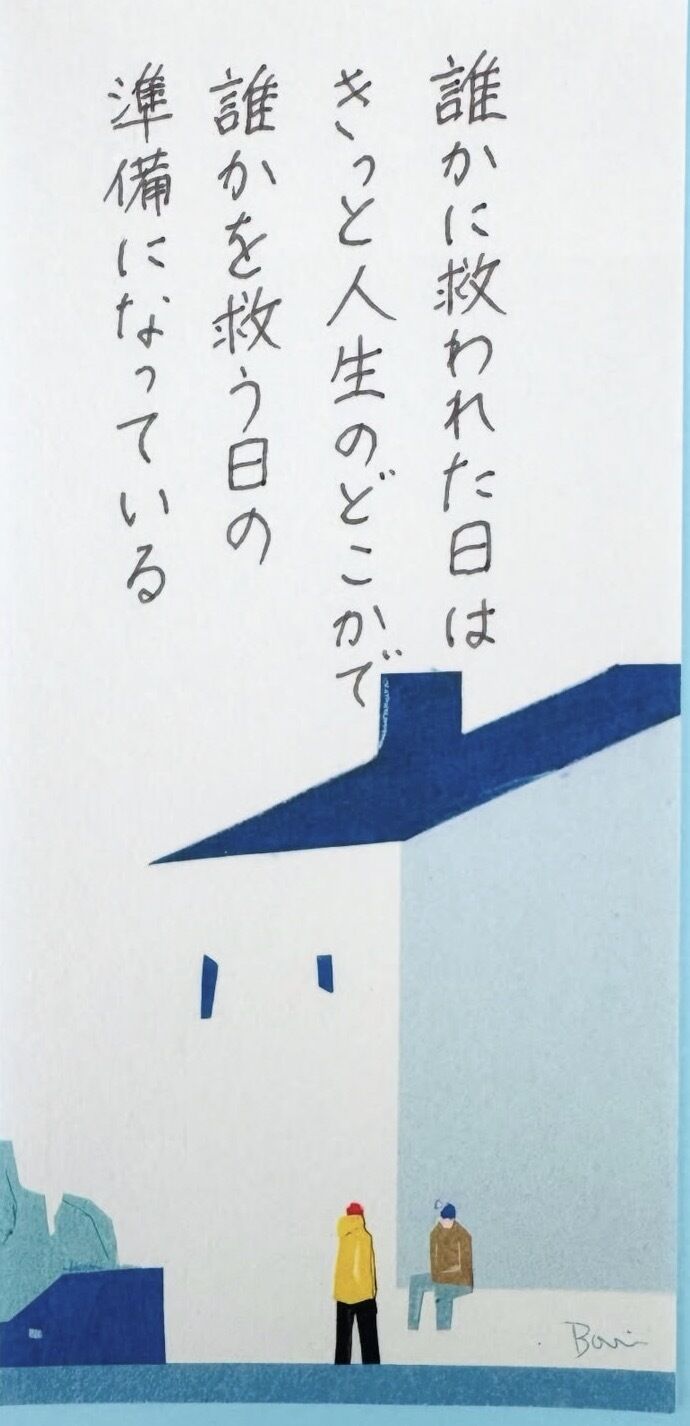 誰かに救われた日は
きっと人生のどこかで
誰かを救う日の
準備になっている